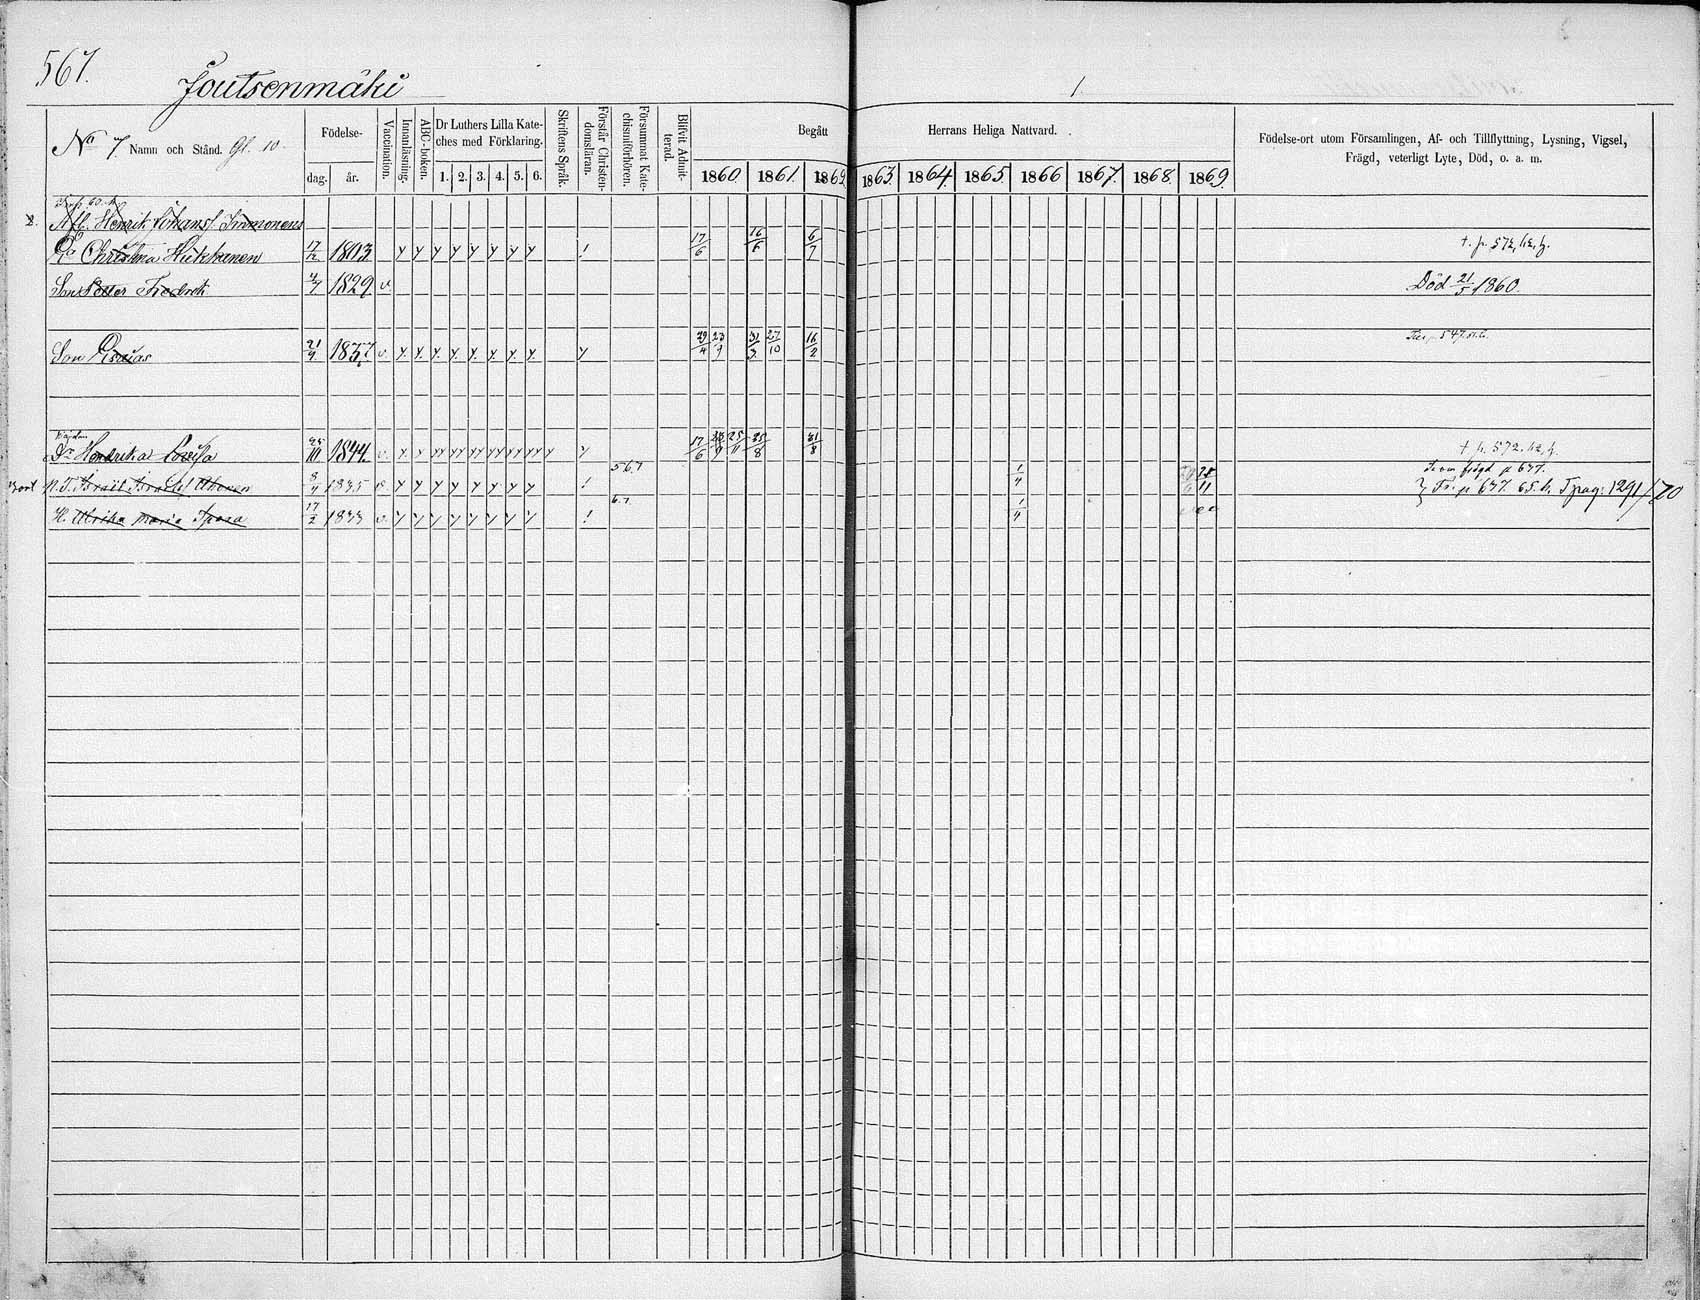 567.
Joutsenmäki
1.
No 7. Namn och Stånd. Gl. 10.
Födelse-
dag. år.
Vaccination.
Innanläsning.
ABC-boken.
Dr Luthers Lilla Kate-
ches med Förklaring.
1. 2. 3. 4. 5. 6.
Skriftens Språk.
Förstår Christen-
domsläran.
Försummat Kate-
chismiförhören.
Blifvit Admit-
terad.
Begått Herrans Heliga Nattvard.
1860. 1861. 1862 1863. 1864. 1865. 1866 1867. 1868. 1869.
Födelse-ort utom Församlingen, Af- och Tillflyttning, Lysning, Vigsel,
Frägd, veterligt Lyte, Död, o. a. m.
Afl. Henrik Johans. Immonens
Christina Hukkanen 17/12 1803 y y y y y y y y ! 17/6 16/6 6/7 t. p. 572,
Son Petter Fredrik 1829 v. Död 21/5 1860.
Son Esaias 21/9 1837 v. y. y. y. y. y. y. y. y. y 29/4 23/9 31/3 27/10 16/2 p. 547.
Dr Hendrika Lovisa 25/10 1844. v. y y y y y y y y y y 17/6 25/11 25/8 31/8 t p. 572,
567 frägd p 637.
bort Israel Israels. Ahonen 8/4 1835 v. y y y y y y y y ! 1/4 28/11 Fr. p 637. 65. T pag: 1291/70
6.7
H. Ulrika Maria Spora 17/2 1833 v. y y y y y y y y ! 1/4